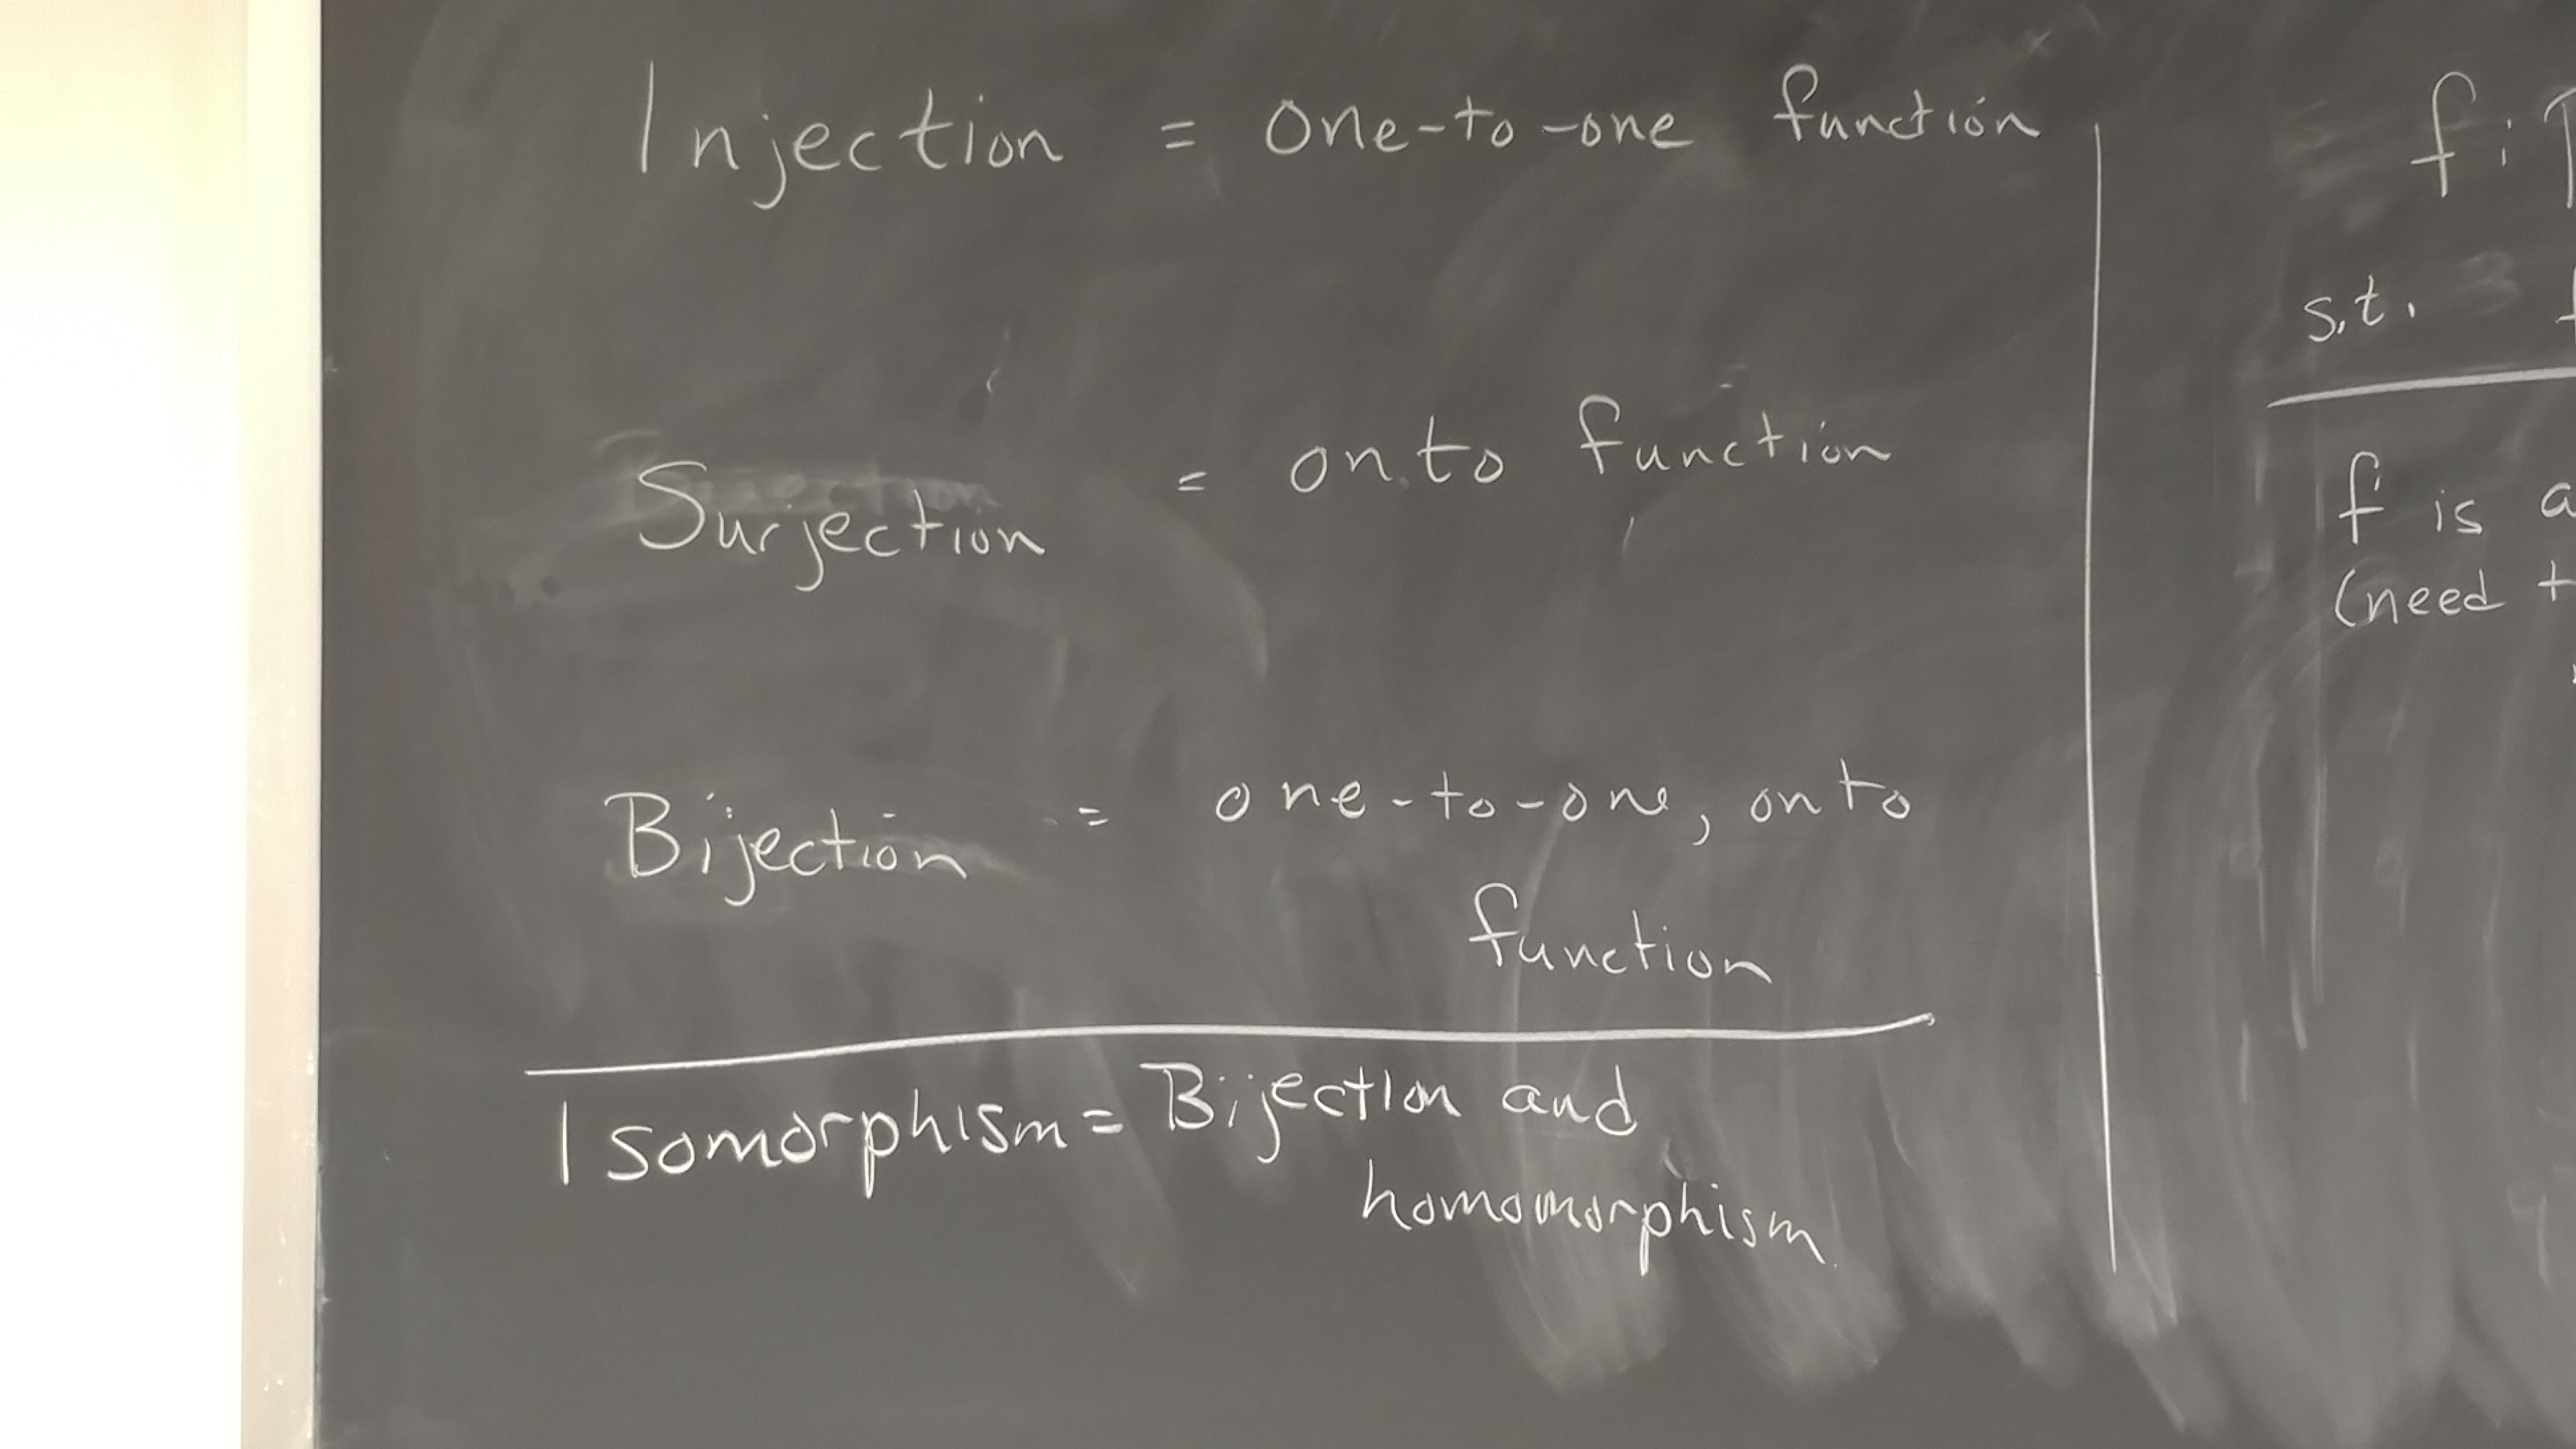 Injection = one-to-one function
Surjection = onto function
Bijection = one-to-one, onto
function
Isomorphism = Bijection and
homomorphism
f:
s.t.
f is a
(need